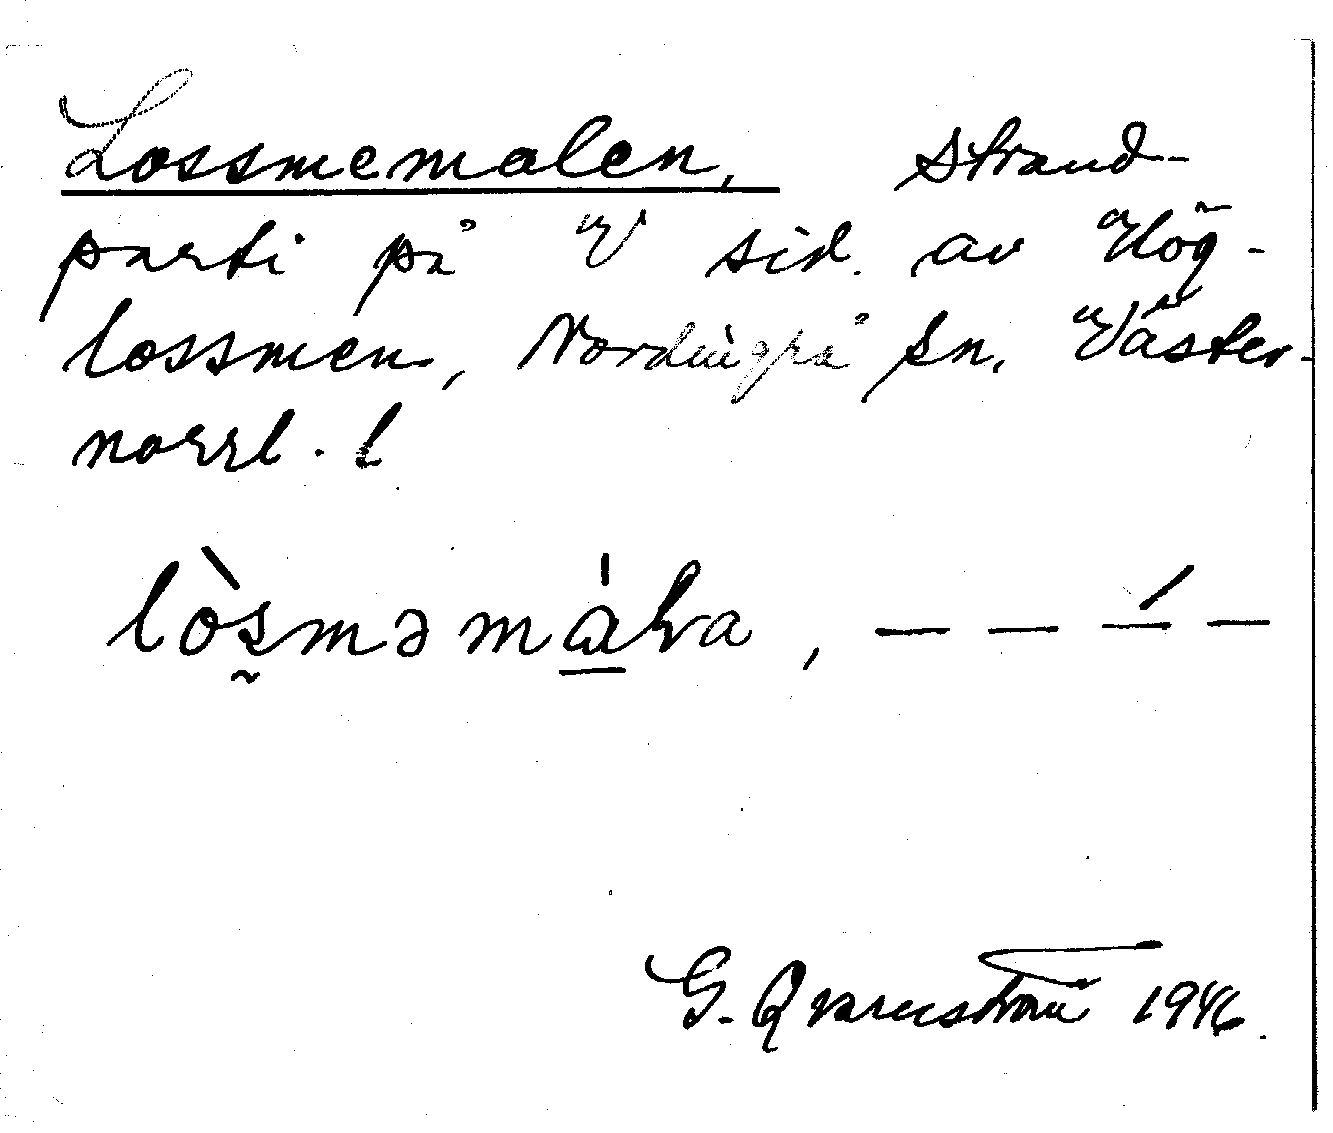 Lossmemalen, strand-
parti på V sid. av Hög-
lossmen, Nordingrå sn. Väster-
norrl. l
lòs̰məma̲̍ɫva, — — —́ —
G. Qvarnström 1946.